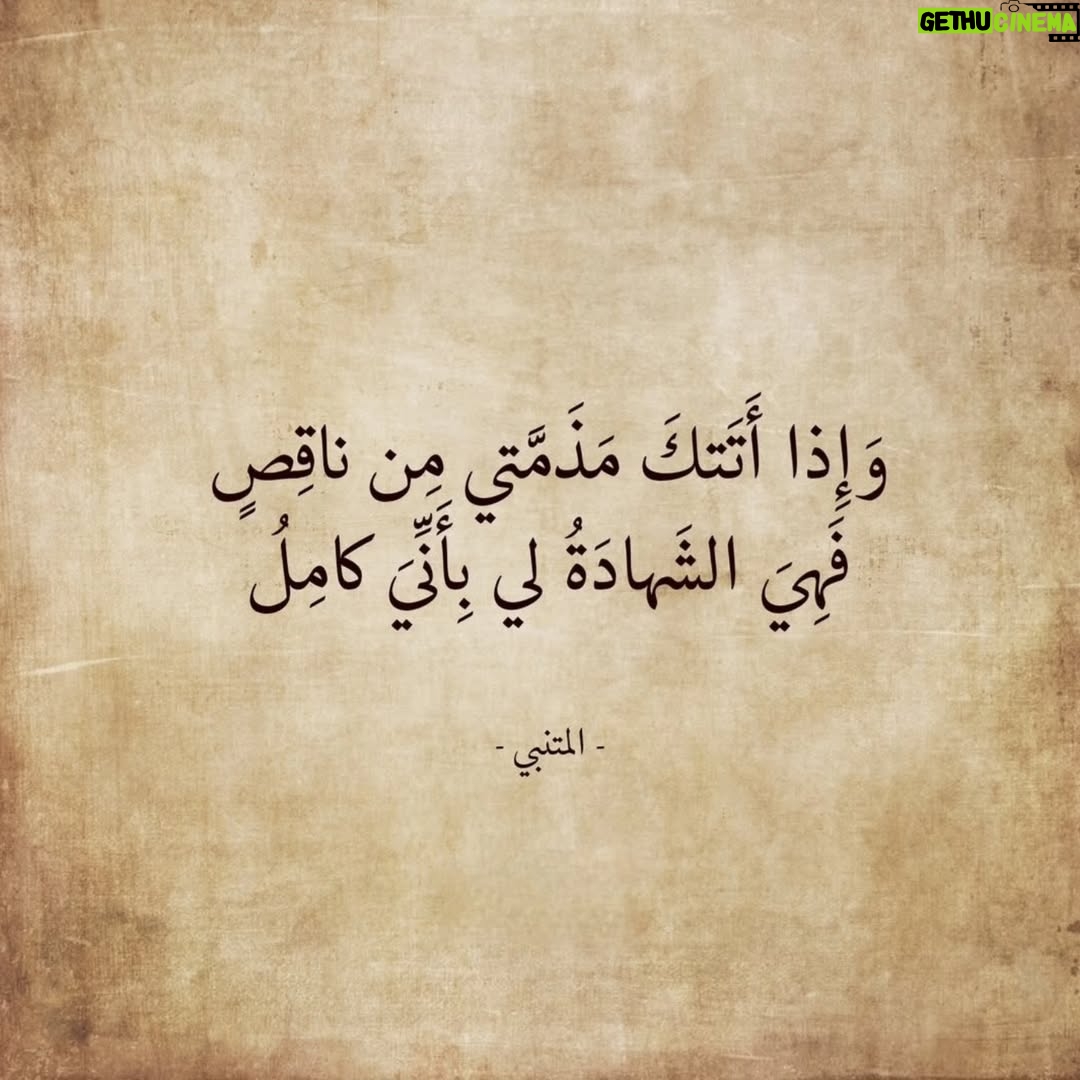 GETHUCINEMA
وَإِذا أَتَتكَ مَذَمَّتي مِن ناقِصٍ
فَهِيَ الشَهادَةُ لي بِأَنِّيَ كامِلُ
- المتنبي -